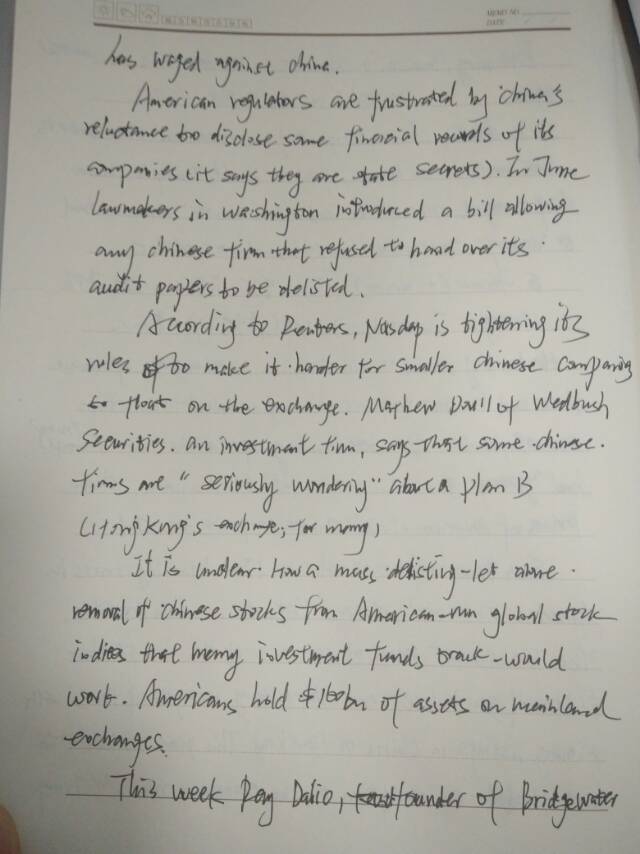 MEMO NO.
DATE
has waged against china.
American regulators are frustrated by china's
reluctance to disclose some financial records of its
companies (it says they are state secrets). In June
lawmakers in washington introduced a bill allowing
any chinese firm that refused to hand over its
audit papers to be delisted.
According to Reuters, Nasdap is tightening its
rules to make it harder for smaller chinese companies
to float on the exchange. Mathew Doull of Wedbush
Securities. an investment firm, says that some chinese.
firms are "seriously wondering" about a plan B
(Hong Kong's exchange, for many)
It is unclear how a mass delisting-let alone
removal of chinese stocks from American-run global stock
indices that many investment funds track-would
work. Americans hold $160bn of assets on mainland
exchanges.
This week Ray Dalio, founder of Bridgewater